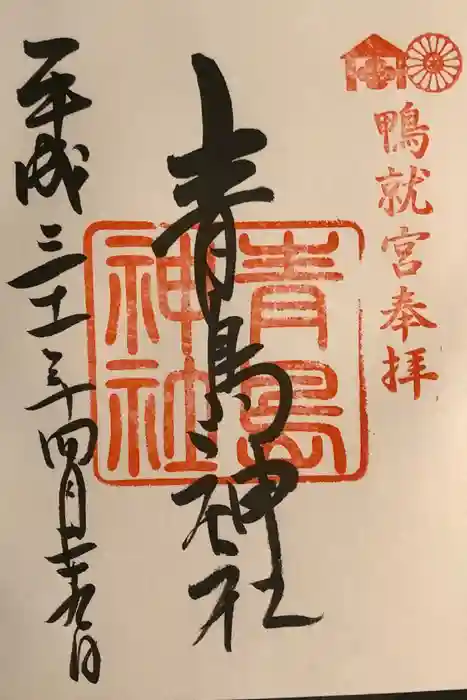 鴨就宮奉拝
青島神社
青島
神社
平成三十一年四月十九日